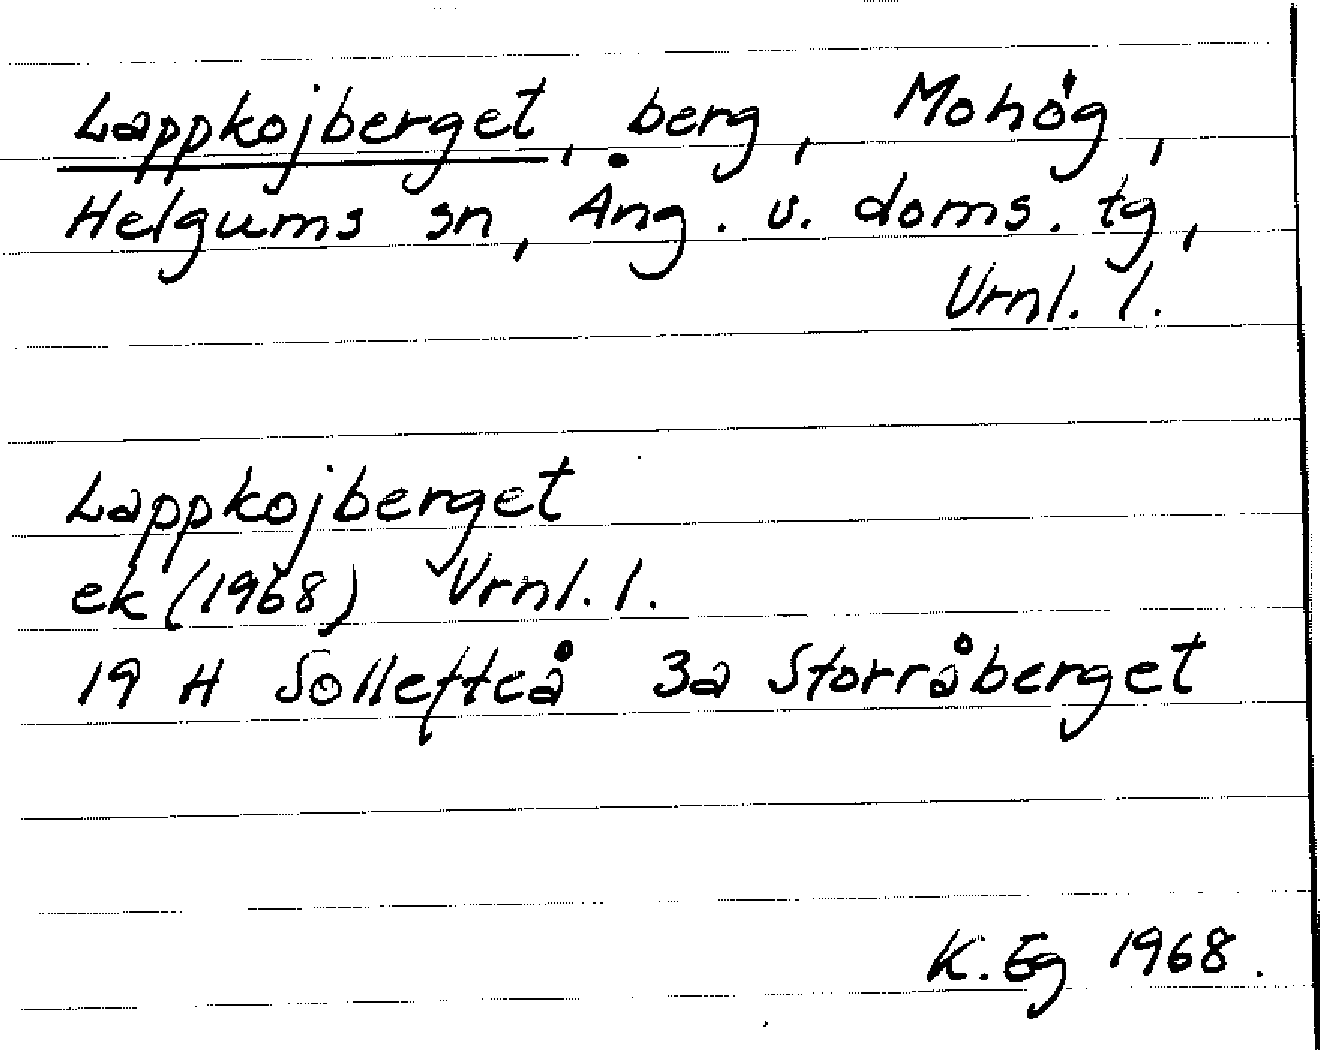 Lappkojberget, berg, Mohög,
Helgums sn, Ång. v. doms. tg,
Vrnl. l.
Lappkojberget
ek (1968) Vrnl. l.
19 H Sollefteå 3a Storråberget
K. Eg 1968.